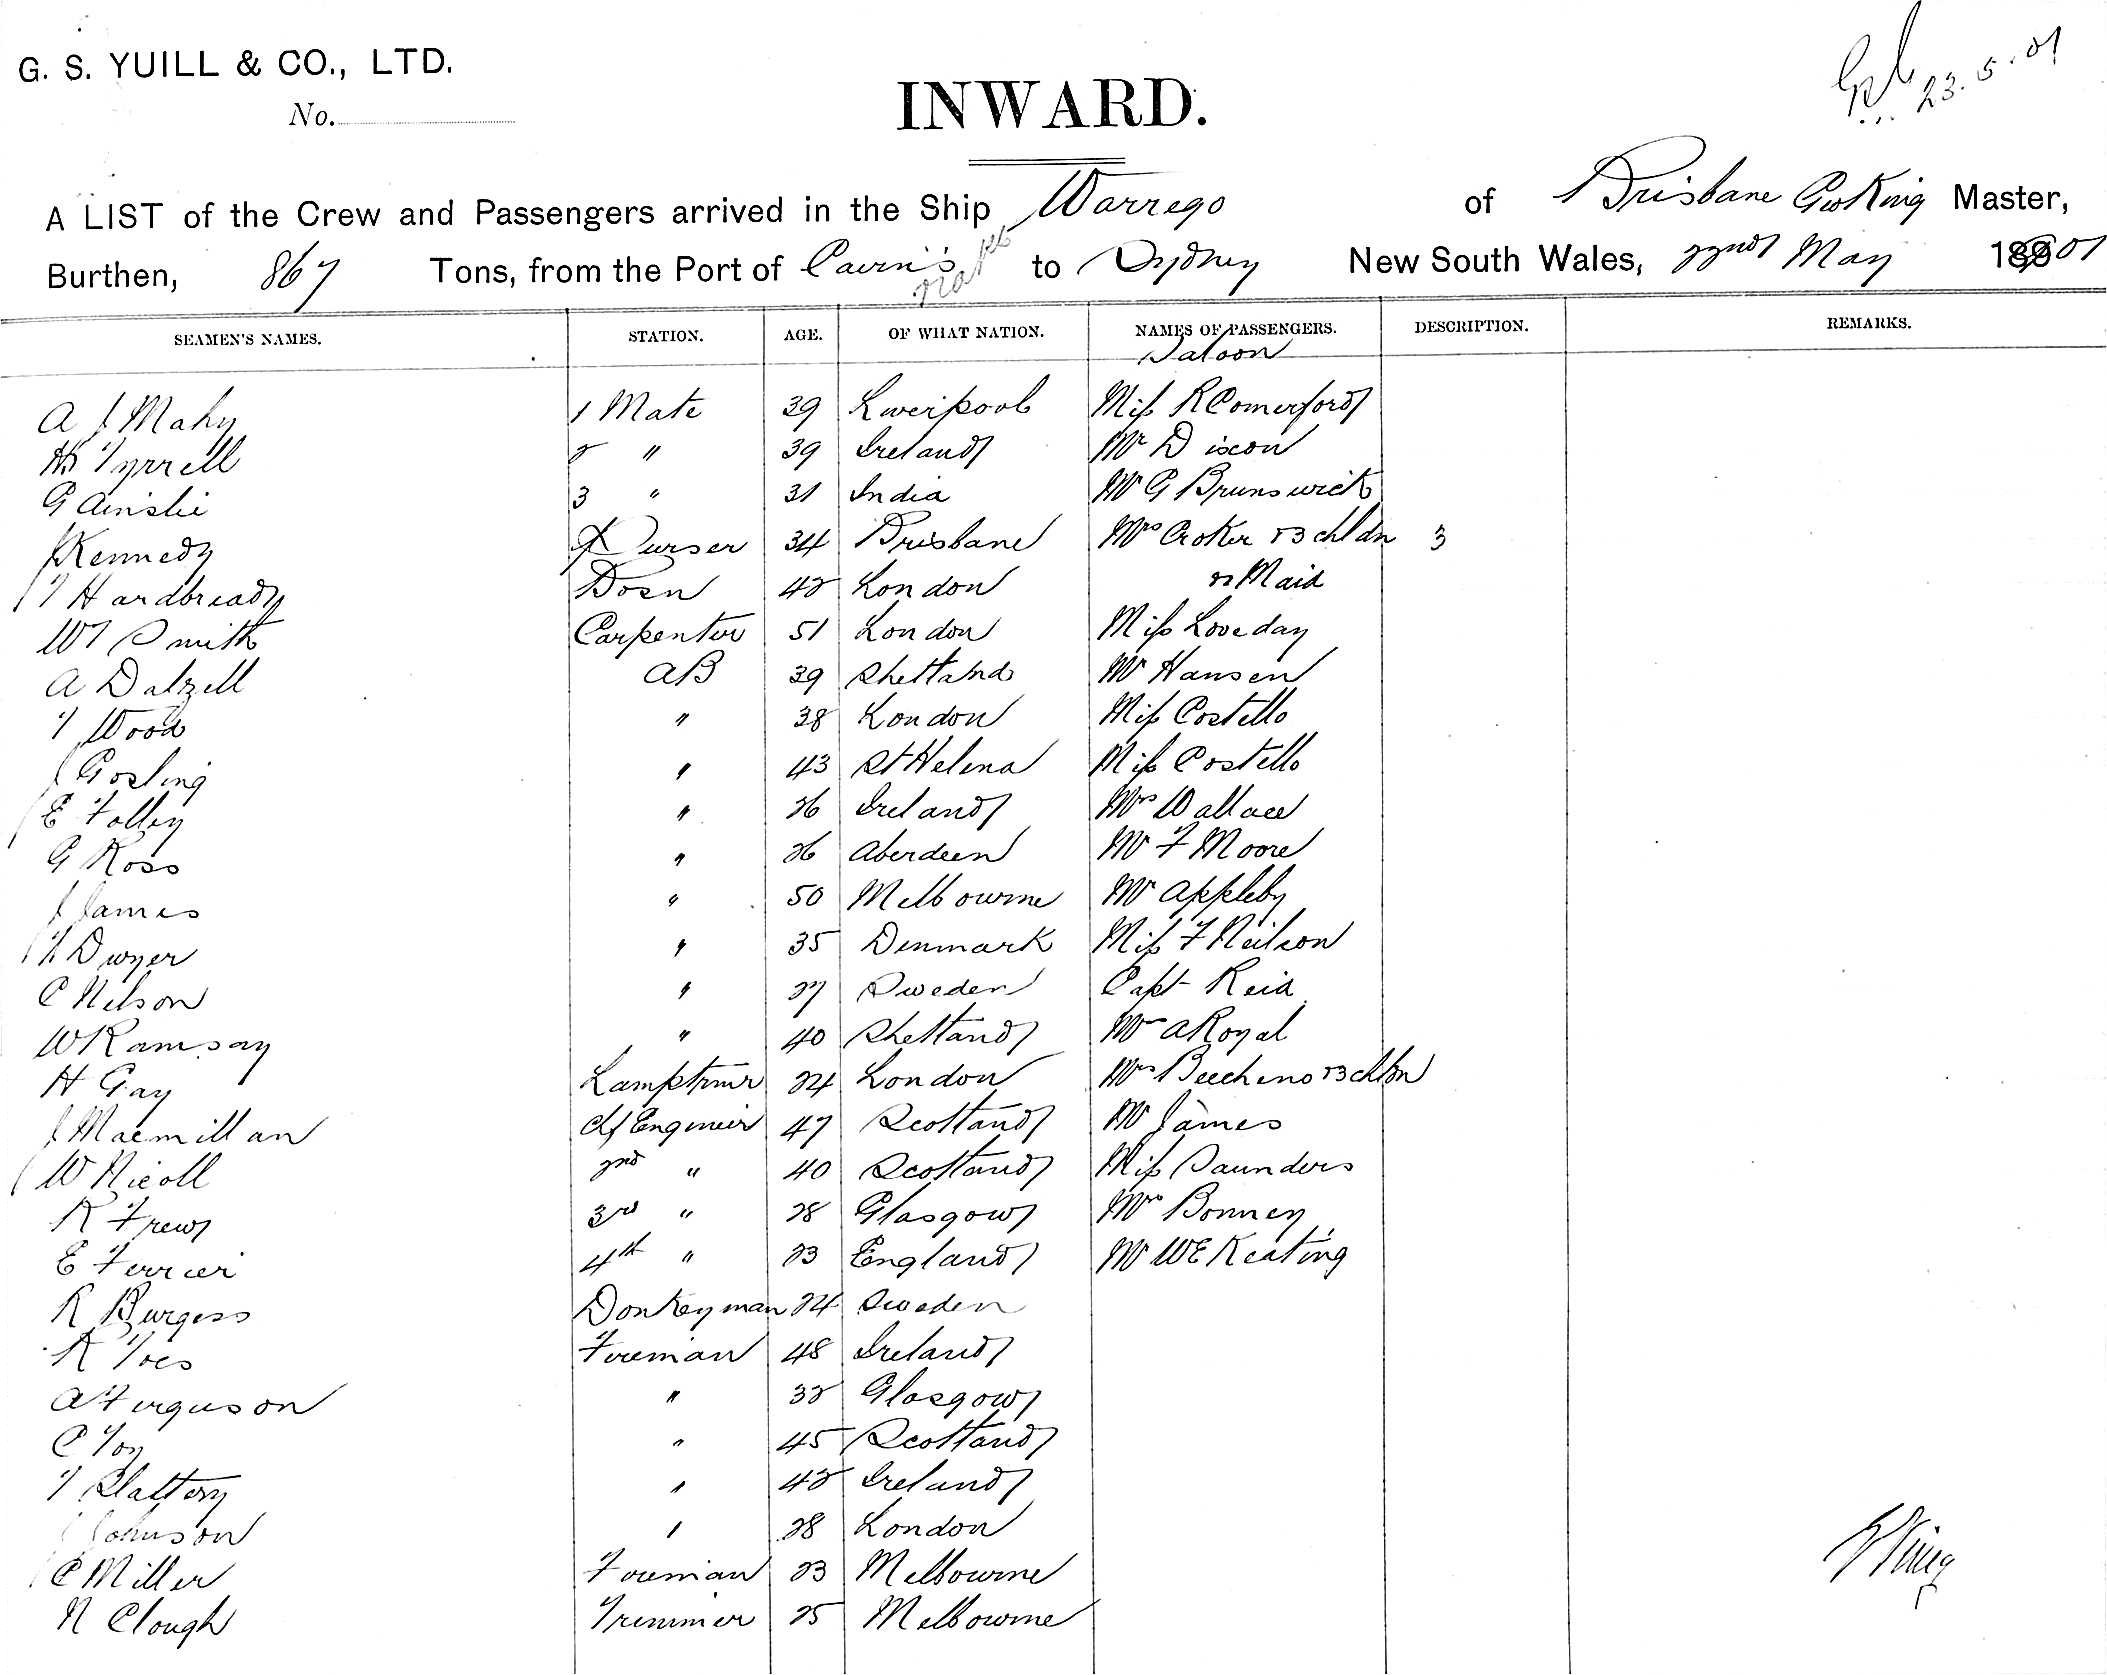 G. S. YUILL & CO., LTD.
No.
INWARD.
23.5.01
A LIST of the Crew and Passengers arrived in the Ship Warrego of Brisbane GW King Master,
Burthen, 867 Tons, from the Port of Cairns to Sydney New South Wales, 22nd May 1901
SEAMEN'S NAMES. STATION. AGE. OF WHAT NATION. NAMES OF PASSENGERS. DESCRIPTION. REMARKS.
Saloon
A J Mahy 1 Mate 39 Liverpool Miss R Comerford
Tyrrell 2 " 39 Ireland Mr Dixon
G Ainslie 3 " 31 India Mr G Brunswick
J Kennedy Purser 34 Brisbane Mrs Croker & 3 chldn 3
T Hardbready Bosn 42 London & Maid
WT Smith Carpenter 51 London Miss Loveday
A Dalzell AB 39 Shetland Mr Hansen
T Wood " 38 London Miss Costello
J Gosling " 43 St Helena Miss Costello
E Folley " 26 Ireland Mrs Wallace
G Ross " 26 Aberdeen Mr F Moore
J James " 50 Melbourne Mr Appleby
Dwyer " 35 Denmark Miss F Neilson
C Nelson " 27 Sweden Capt Reid
W Ramsay " 40 Shetland A Royal
H Gay Lamptrmr 24 London Mrs Beecheno & 3 chldn
J Macmillan Cf Engineer 47 Scotland Mr James
W Nicoll 2nd " 40 Scotland Miss Saunders
R Frew 3rd " 28 Glasgow Mrs Bonney
E Ferrier 4th " 23 England Mr WE Keating
R Burgess Donkeyman 24 Sweden
R Voes Fireman 48 Ireland
A Ferguson " 32 Glasgow
C Toy " 45 Scotland
T Slattery " 42 Ireland
J Johnson " 28 London
C Miller Fireman 23 Melbourne
N Clough Trimmer 25 Melbourne